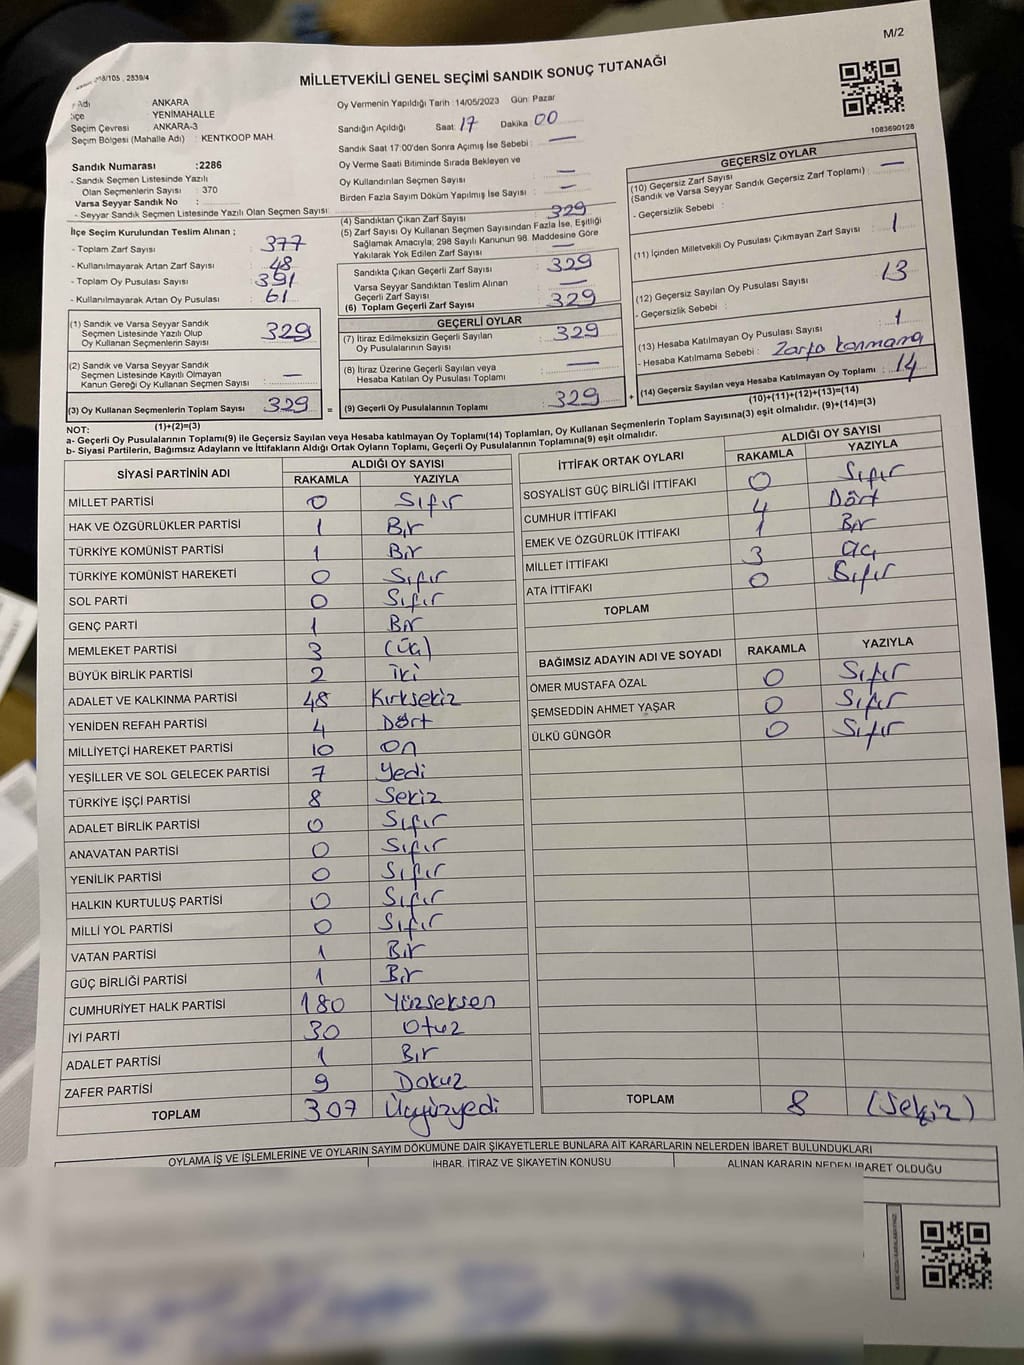 M/2
MİLLETVEKİLİ GENEL SEÇİMİ SANDIK SONUÇ TUTANAĞI
ANKARA
YENİMAHALLE
Seçim Çevresi ANKARA-3
Seçim Bölgesi (Mahalle Adı) : KENTKOOP MAH.
Oy Vermenin Yapıldığı Tarih :14/05/2023 Gün: Pazar
Sandığın Açıldığı Saat: 17 Dakika: 00
Sandık Saat 17:00'den Sonra Açımış İse Sebebi : —
Oy Verme Saati Bitiminde Sırada Bekleyen ve
Oy Kullandırılan Seçmen Sayısı —
Birden Fazla Sayım Döküm Yapılmış İse Sayısı : —
1083690128
Sandık Numarası :2286
- Sandık Seçmen Listesinde Yazılı
Olan Seçmenlerin Sayısı : 370
Varsa Seyyar Sandık No :
- Seyyar Sandık Seçmen Listesinde Yazılı Olan Seçmen Sayısı:
İlçe Seçim Kurulundan Teslim Alınan ;
- Toplam Zarf Sayısı : 377
- Kullanılmayarak Artan Zarf Sayısı : 48
- Toplam Oy Pusulası Sayısı : 391
- Kullanılmayarak Artan Oy Pusulası : 61
(1) Sandık ve Varsa Seyyar Sandık
Seçmen Listesinde Yazılı Olup
Oy Kullanan Seçmenlerin Sayısı : 329
(2) Sandık ve Varsa Seyyar Sandık
Seçmen Listesinde Kayıtlı Olmayan
Kanun Gereği Oy Kullanan Seçmen Sayısı : —
(3) Oy Kullanan Seçmenlerin Toplam Sayısı : 329 =
(1)+(2)=(3)
(4) Sandıktan Çıkan Zarf Sayısı : 329
(5) Zarf Sayısı Oy Kullanan Seçmen Sayısından Fazla İse, Eşitliği
Sağlamak Amacıyla; 298 Sayılı Kanunun 98. Maddesine Göre
Yakılarak Yok Edilen Zarf Sayısı : —
Sandıkta Çıkan Geçerli Zarf Sayısı : 329
Varsa Seyyar Sandıktan Teslim Alınan
Geçerli Zarf Sayısı : —
(6) Toplam Geçerli Zarf Sayısı : 329
GEÇERLİ OYLAR
(7) İtiraz Edilmeksizin Geçerli Sayılan
Oy Pusulalarının Sayısı : 329
(8) İtiraz Üzerine Geçerli Sayılan veya
Hesaba Katılan Oy Pusulası Toplamı : —
(9) Geçerli Oy Pusulalarının Toplamı : 329 +
GEÇERSİZ OYLAR
(10) Geçersiz Zarf Sayısı
(Sandık ve Varsa Seyyar Sandık Geçersiz Zarf Toplamı) : —
- Geçersizlik Sebebi :
(11) İçinden Milletvekili Oy Pusulası Çıkmayan Zarf Sayısı : 1
(12) Geçersiz Sayılan Oy Pusulası Sayısı : 13
- Geçersizlik Sebebi :
(13) Hesaba Katılmayan Oy Pusulası Sayısı : 1
- Hesaba Katılmama Sebebi : Zarfa konmama
(14) Geçersiz Sayılan veya Hesaba Katılmayan Oy Toplamı : 14
(10)+(11)+(12)+(13)=(14)
NOT:
a- Geçerli Oy Pusulalarının Toplamı(9) ile Geçersiz Sayılan veya Hesaba katılmayan Oy Toplamı(14) Toplamları, Oy Kullanan Seçmenlerin Toplam Sayısına(3) eşit olmalıdır. (9)+(14)=(3)
b- Siyasi Partilerin, Bağımsız Adayların ve İttifakların Aldığı Ortak Oyların Toplamı, Geçerli Oy Pusulalarının Toplamına(9) eşit olmalıdır.
SİYASİ PARTİNİN ADI ALDIĞI OY SAYISI
RAKAMLA YAZIYLA
MİLLET PARTİSİ 0 Sıfır
HAK VE ÖZGÜRLÜKLER PARTİSİ 1 Bir
TÜRKİYE KOMÜNİST PARTİSİ 1 Bir
TÜRKİYE KOMÜNİST HAREKETİ 0 Sıfır
SOL PARTİ 0 Sıfır
GENÇ PARTİ 1 Bir
MEMLEKET PARTİSİ 3 (Üç)
BÜYÜK BİRLİK PARTİSİ 2 İki
ADALET VE KALKINMA PARTİSİ 48 Kırksekiz
YENİDEN REFAH PARTİSİ 4 Dört
MİLLİYETÇİ HAREKET PARTİSİ 10 On
YEŞİLLER VE SOL GELECEK PARTİSİ 7 Yedi
TÜRKİYE İŞÇİ PARTİSİ 8 Sekiz
ADALET BİRLİK PARTİSİ 0 Sıfır
ANAVATAN PARTİSİ 0 Sıfır
YENİLİK PARTİSİ 0 Sıfır
HALKIN KURTULUŞ PARTİSİ 0 Sıfır
MİLLİ YOL PARTİSİ 0 Sıfır
VATAN PARTİSİ 1 Bir
GÜÇ BİRLİĞİ PARTİSİ 1 Bir
CUMHURİYET HALK PARTİSİ 180 Yüzseksen
İYİ PARTİ 30 Otuz
ADALET PARTİSİ 1 Bir
ZAFER PARTİSİ 9 Dokuz
TOPLAM 307 Üçyüzyedi
İTTİFAK ORTAK OYLARI ALDIĞI OY SAYISI
RAKAMLA YAZIYLA
SOSYALİST GÜÇ BİRLİĞİ İTTİFAKI 0 Sıfır
CUMHUR İTTİFAKI 4 Dört
EMEK VE ÖZGÜRLÜK İTTİFAKI 1 Bir
MİLLET İTTİFAKI 3 Üç
ATA İTTİFAKI 0 Sıfır
TOPLAM
BAĞIMSIZ ADAYIN ADI VE SOYADI RAKAMLA YAZIYLA
ÖMER MUSTAFA ÖZAL 0 Sıfır
ŞEMSEDDİN AHMET YAŞAR 0 Sıfır
ÜLKÜ GÜNGÖR 0 Sıfır
TOPLAM 8 (Sekiz)
OYLAMA İŞ VE İŞLEMLERİNE VE OYLARIN SAYIM DÖKÜMÜNE DAİR ŞİKAYETLERLE BUNLARA AİT KARARLARIN NELERDEN İBARET BULUNDUKLARI
İHBAR, İTİRAZ VE ŞİKAYETİN KONUSU
ALINAN KARARIN NEDEN İBARET OLDUĞU